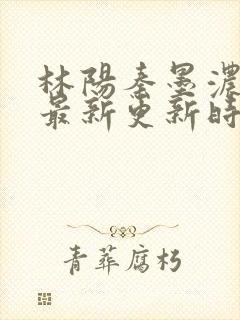 林陽秦墨濃
最新更新時
青葬腐朽